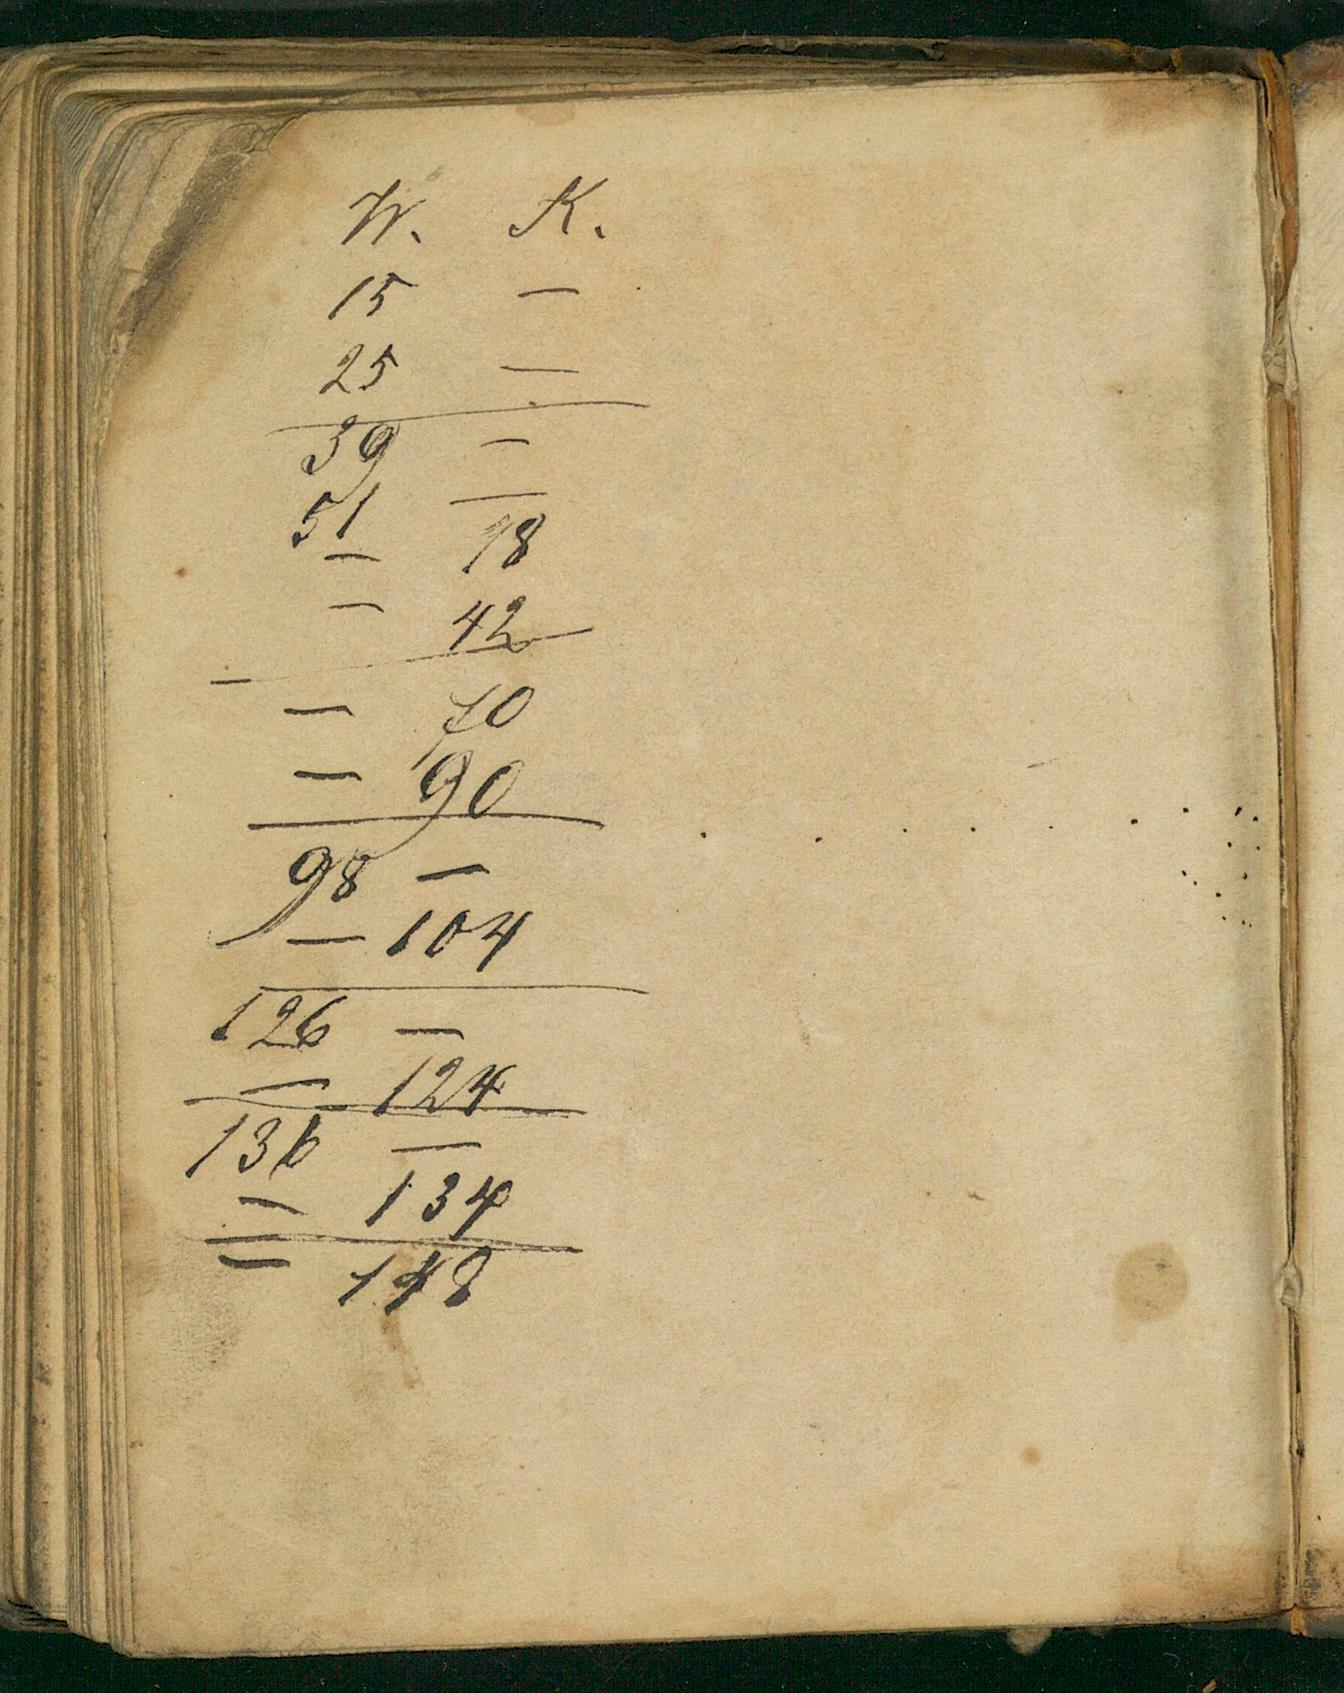 W. K.
15 —
25 —
39 —
51 —
— 18
— 42
— 70
— 90
98 —
— 104
126 —
— 124
136 —
— 134
— 148